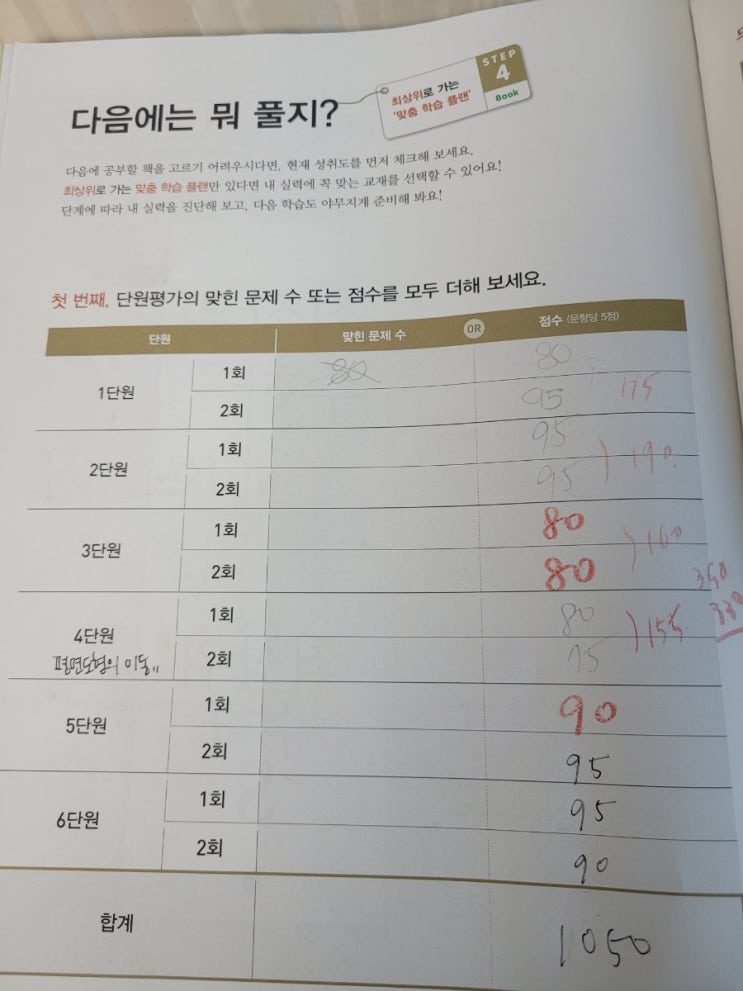 다음에는 뭐 풀지?
최상위로 가는
'맞춤 학습 플랜'
STEP
4
Book
다음에 공부할 책을 고르기 어려우시다면, 현재 성취도를 먼저 체크해 보세요.
최상위로 가는 맞춤 학습 플랜만 있다면 내 실력에 꼭 맞는 교재를 선택할 수 있어요!
단계에 따라 내 실력을 진단해 보고, 다음 학습도 야무지게 준비해 봐요!
첫 번째, 단원평가의 맞힌 문제 수 또는 점수를 모두 더해 보세요.
단원 맞힌 문제 수 OR 점수 (문항당 5점)
1단원 1회 80 80
2회 95 175
2단원 1회 95
2회 95 190
3단원 1회 80
2회 80 160
350
4단원 1회 80 155 330
평면도형의 이동 2회 75
5단원 1회 90
2회 95
6단원 1회 95
2회 90
합계 1050